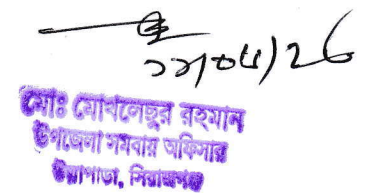 ২২/০৮/২৬
মোঃ মোখলেছুর রহমান
উপজেলা সমবায় অফিসার
উল্লাপাড়া, সিরাজগঞ্জ